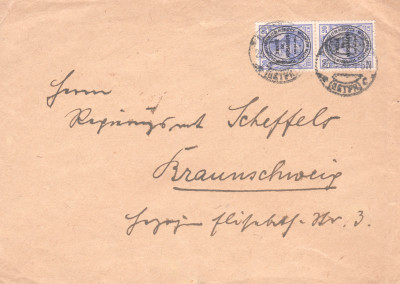 Herrn
Regierungsrat Scheffels
Braunschweig
Herzogin Elisabeth-Str. 3.